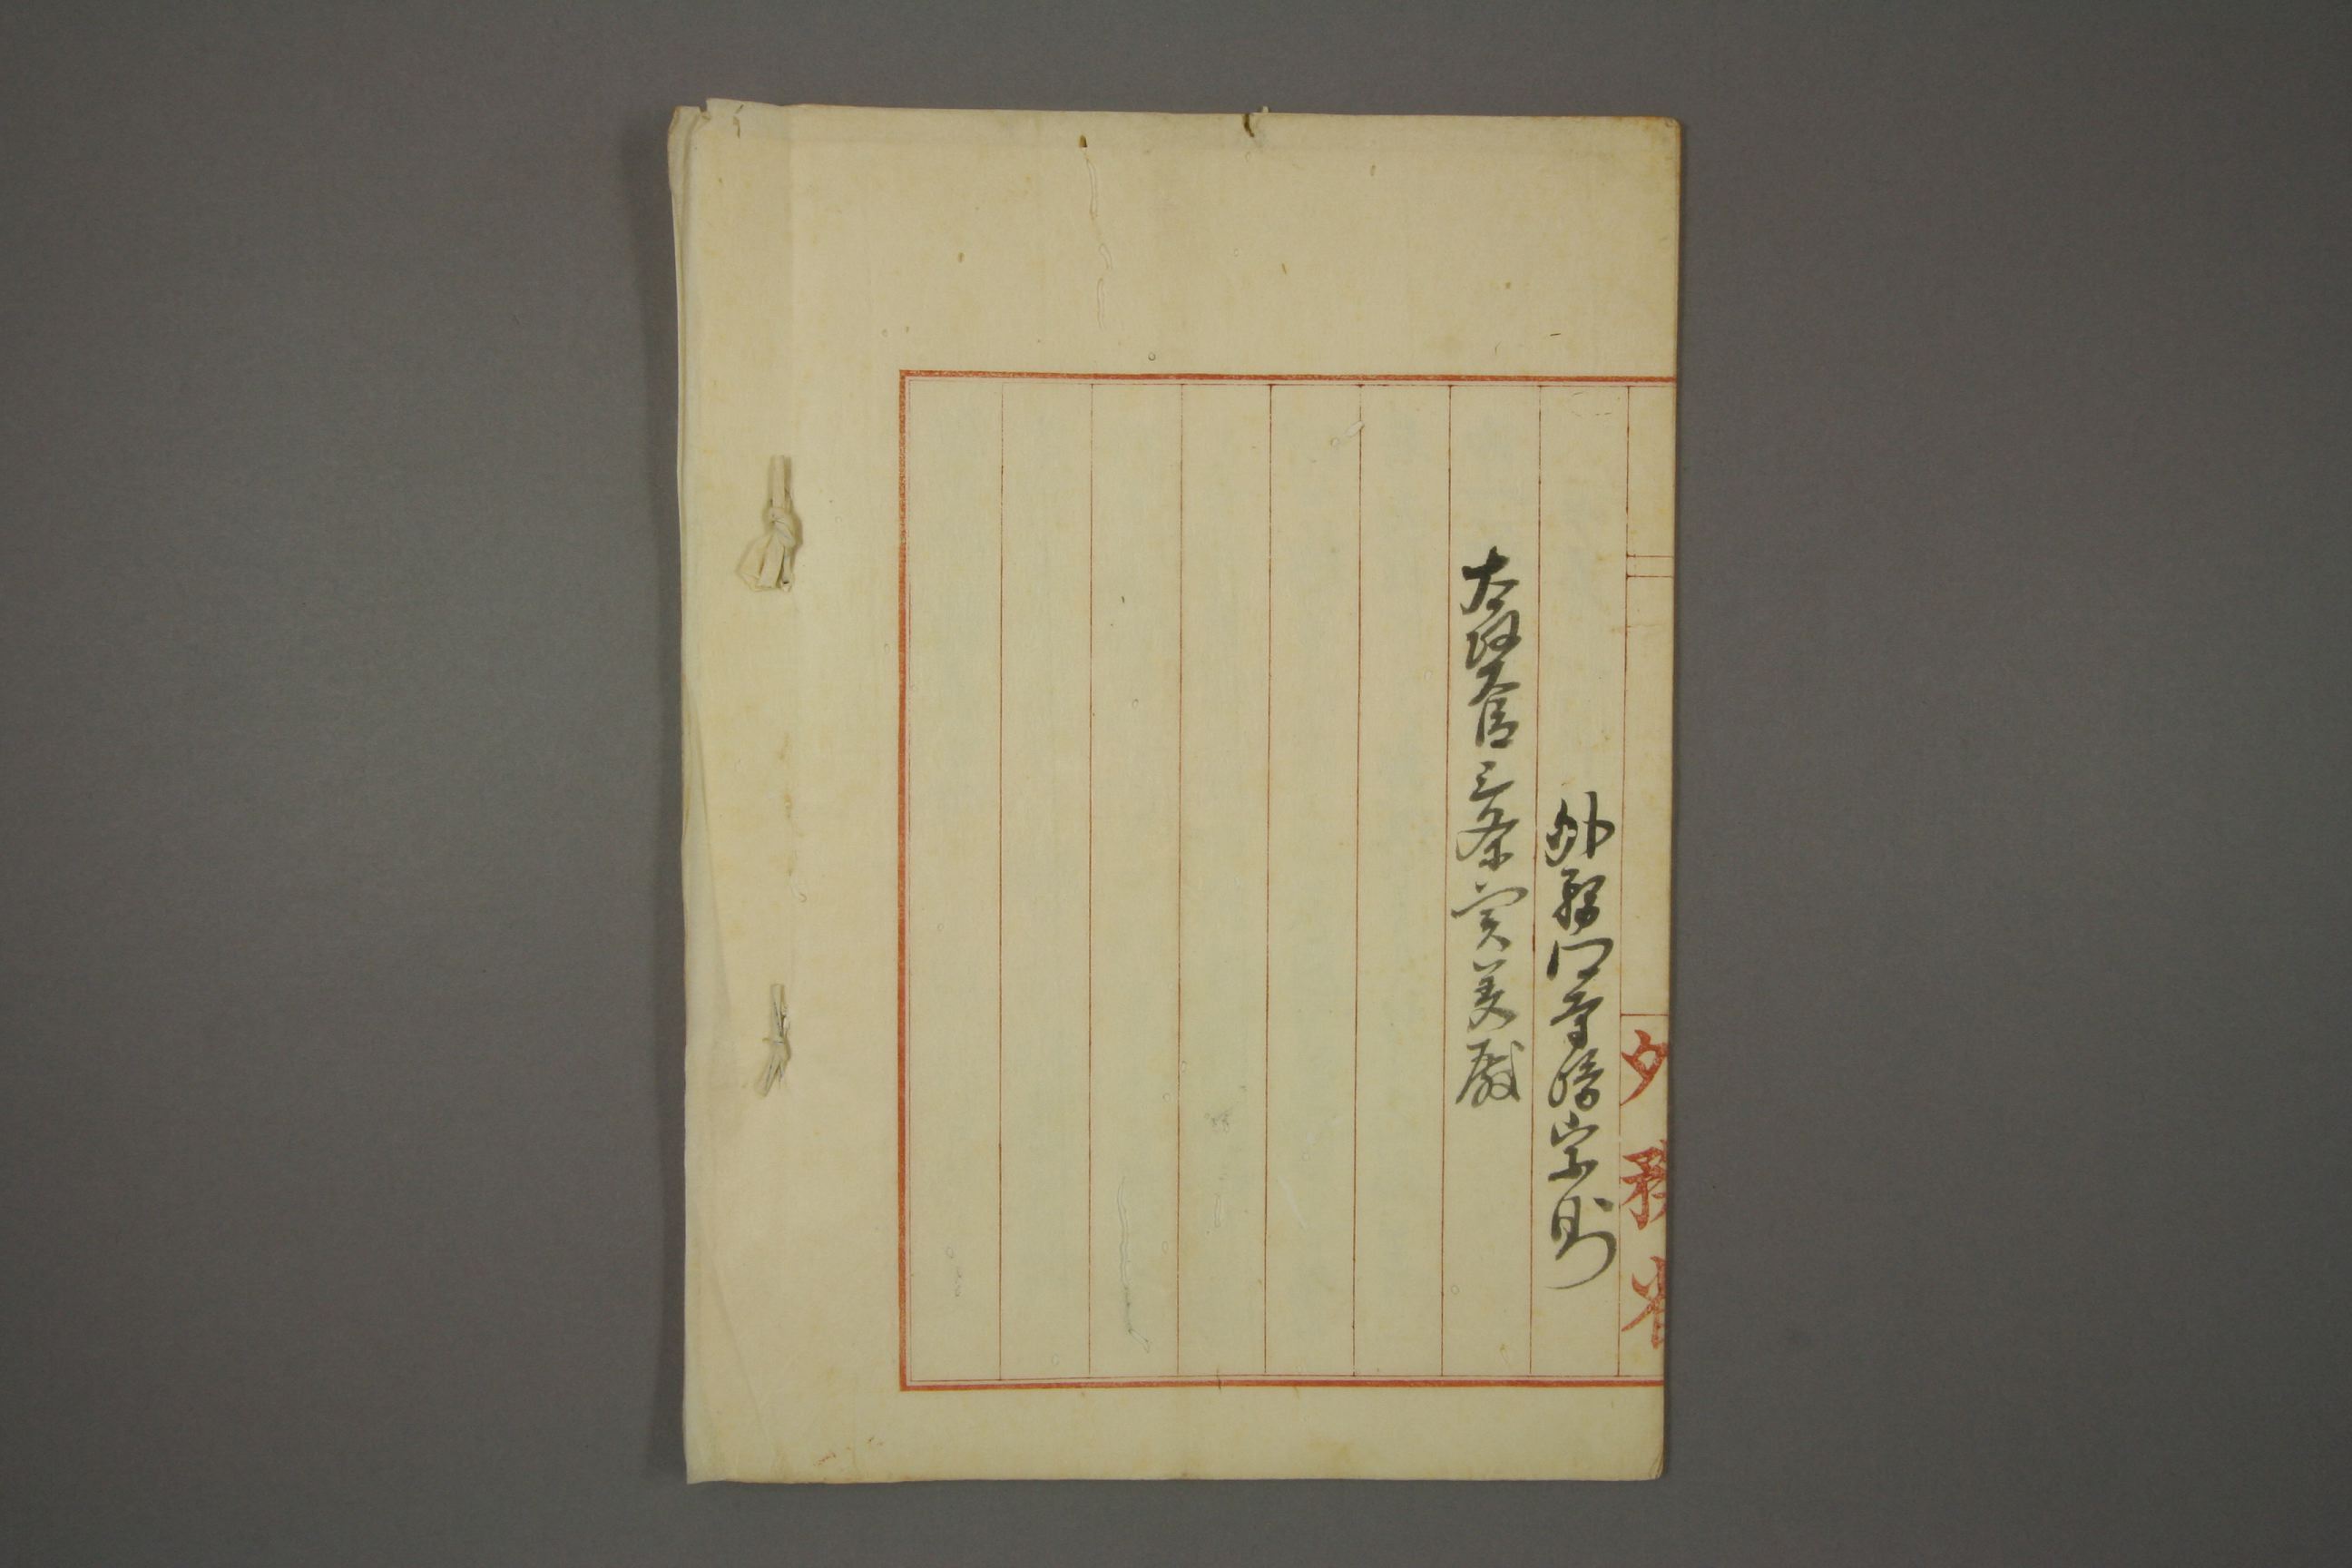 外務省
外務卿寺嶋宗則
太政大臣三条実美殿